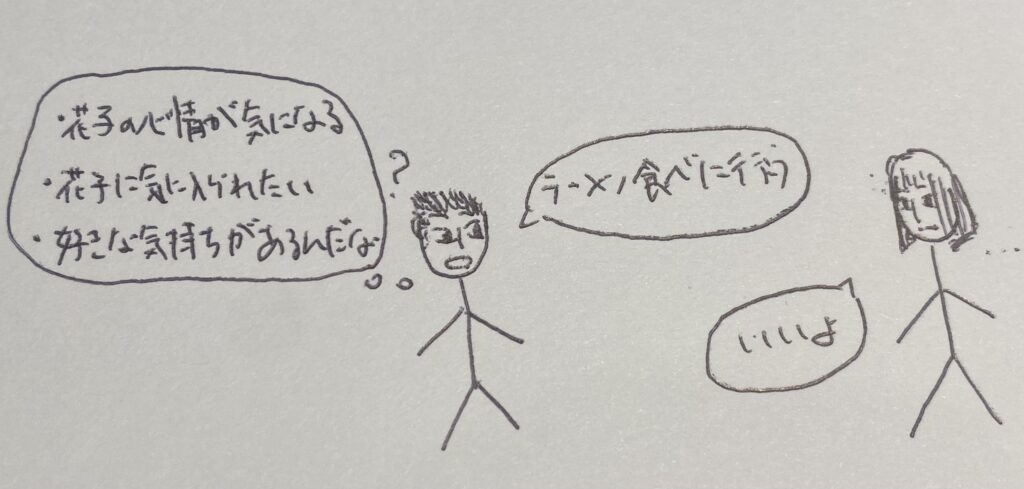 ・花子の心情が気になる
・花子に気に入られたい
・好きな気持ちがあるんだな
?
ラーメン食べに行こう
いいよ